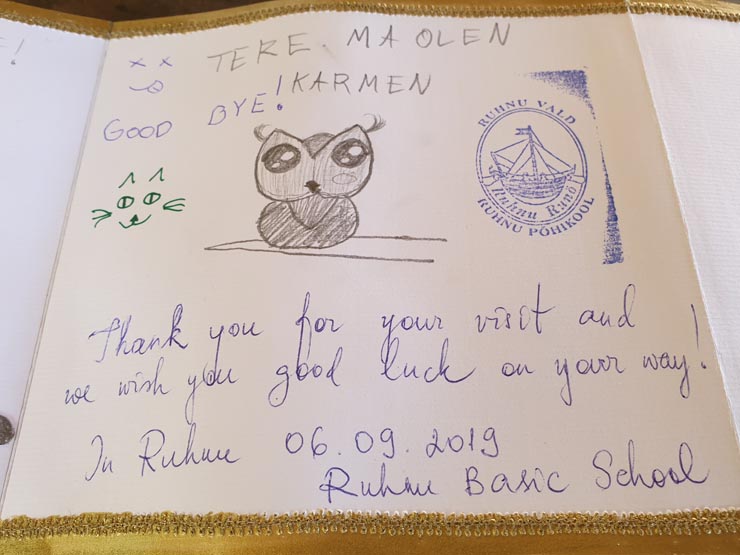 TERE. MA OLEN
KARMEN
GOOD BYE!
RUHNU VALD
Ruhnu Runö
RUHNU PÕHIKOOL
Thank you for your visit and
we wish you good luck on your way!
In Ruhnu 06.09.2019
Ruhnu Basic School